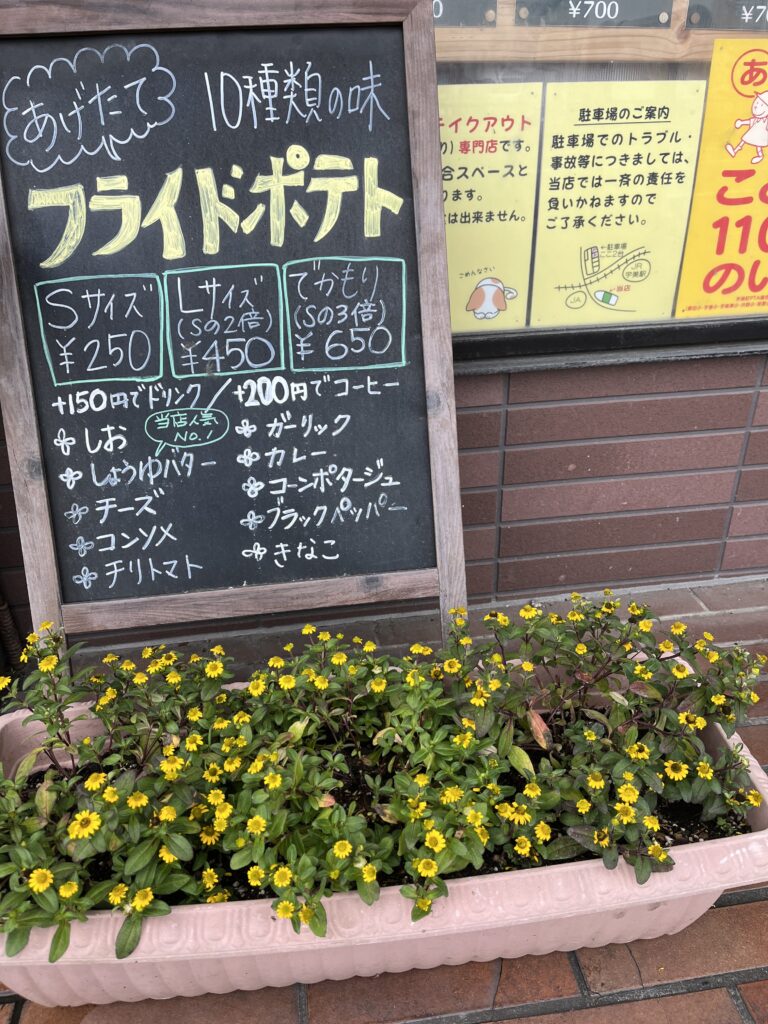 あげたて
10種類の味
フライドポテト
Sサイズ
¥250
Lサイズ
(Sの2倍)
¥450
でかもり
(Sの3倍)
¥650
+150円でドリンク/+200円でコーヒー
しお
当店人気
NO.1
しょうゆバター
チーズ
コンソメ
チリトマト
ガーリック
カレー
コーンポタージュ
ブラックペッパー
きなこ
0
¥700
¥70
テイクアウト
り)専門店です。
合スペースと
ります。
は出来ません。
ごめんなさい
駐車場のご案内
駐車場でのトラブル・
事故等につきましては、
当店では一斉の責任を
負いかねますので
ご了承ください。
←駐車場
ここ2台
JR
宇美駅
JA
↑当店
あ
こ
110
のい